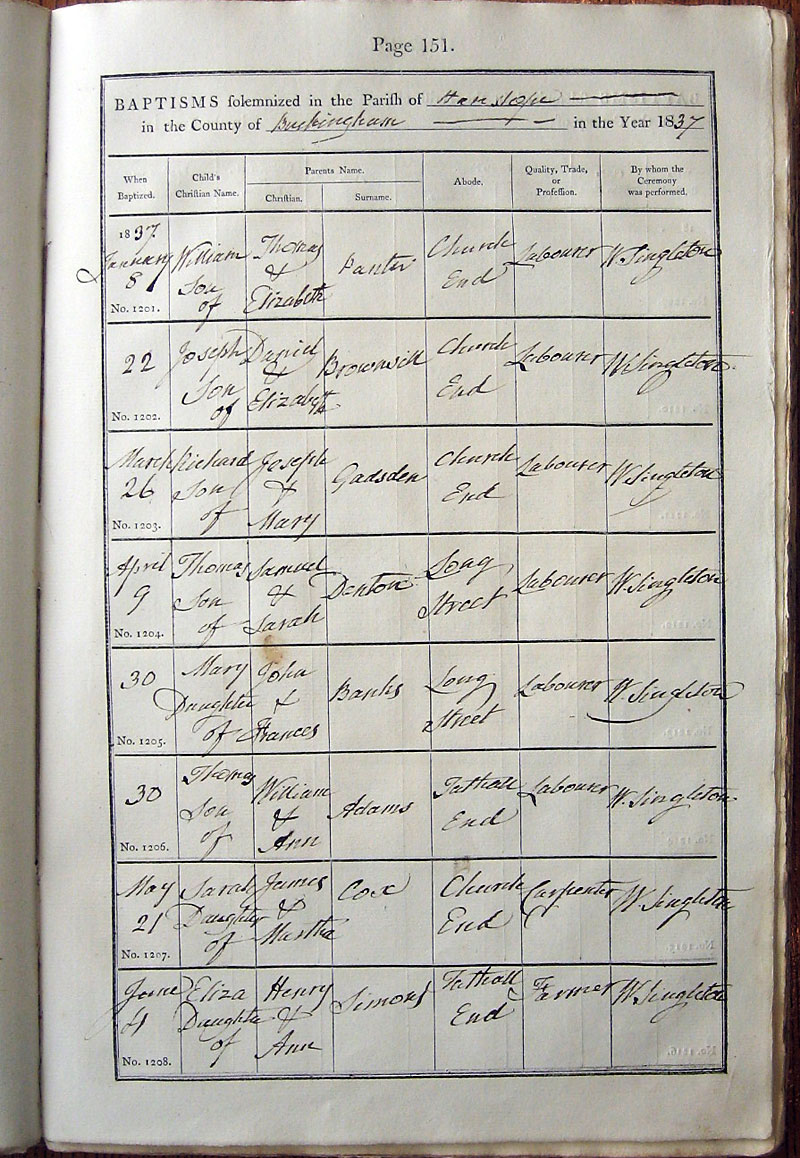 Page 151.
BAPTISMS solemnized in the Parish of Hanslope
in the County of Buckingham in the Year 1837
When Baptized. Child's Christian Name. Parents Name. Christian. Surname. Abode. Quality, Trade, or Profession. By whom the Ceremony was performed.
1837 January 8 No. 1201. William Son of Thomas & Elizabeth Panter Church End Labourer W. Singleton
22 No. 1202. Joseph Son of Daniel & Elizabeth Brownsill Church End Labourer W. Singleton
March 26 No. 1203. Richard Son of Joseph & Mary Gadsden Church End Labourer W. Singleton
April 9 No. 1204. Thomas Son of Samuel & Sarah Denton Long Street Labourer W. Singleton
30 No. 1205. Mary Daughter of John & Frances Banks Long Street Labourer W. Singleton
30 No. 1206. Thomas Son of William & Ann Adams Tathall End Labourer W. Singleton
May 21 No. 1207. Sarah Daughter of James & Martha Cox Church End Carpenter W. Singleton
June 4 No. 1208. Eliza Daughter of Henry & Ann Simons Tathall End Farmer W. Singleton